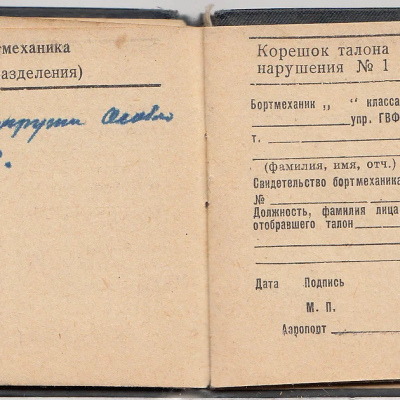 ртмеханика
азделения)
Особо
Корешок талона
нарушения № 1
Бортмеханик „ “ класса
упр. ГВФ
т.
(фамилия, имя, отч.)
Свидетельство бортмеханика
№
Должность, фамилия лица
отобравшего талон
Дата Подпись
М. П.
Аэропорт